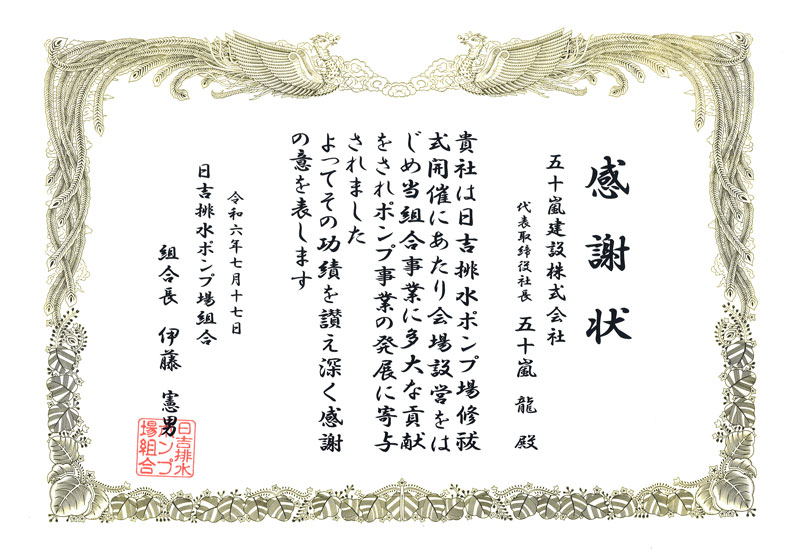 感謝状
五十嵐建設株式会社
代表取締役社長 五十嵐 龍 殿
貴社は日吉排水ポンプ場修祓
式開催にあたり会場設営をは
じめ当組合事業に多大な貢献
をされポンプ事業の発展に寄与
されました
よってその功績を讃え深く感謝
の意を表します
令和六年七月十七日
日吉排水ポンプ場組合
組合長 伊藤 憲男
日吉排水
ポンプ
場組合